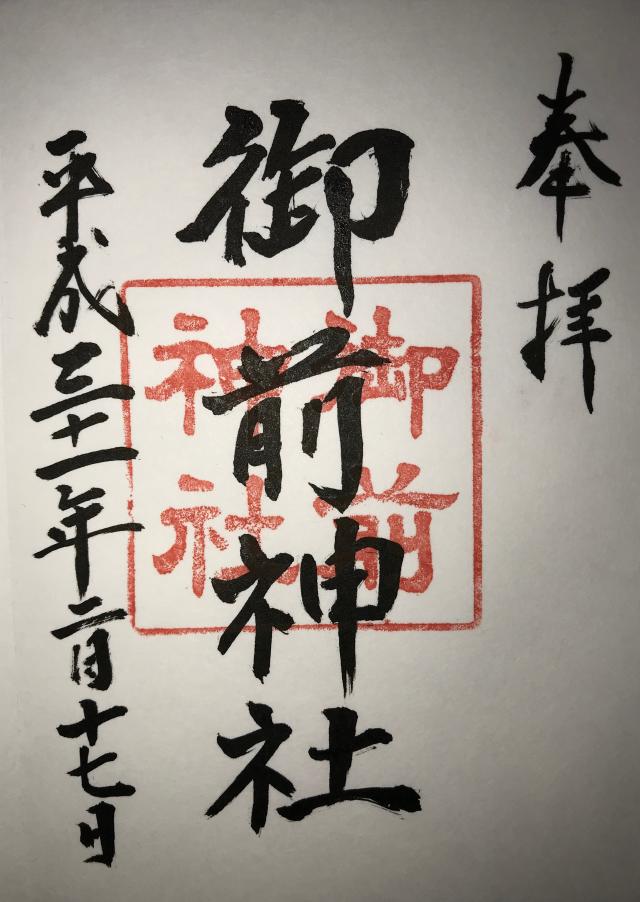 奉拝
御前神社
御前神社
平成三十一年二月十七日